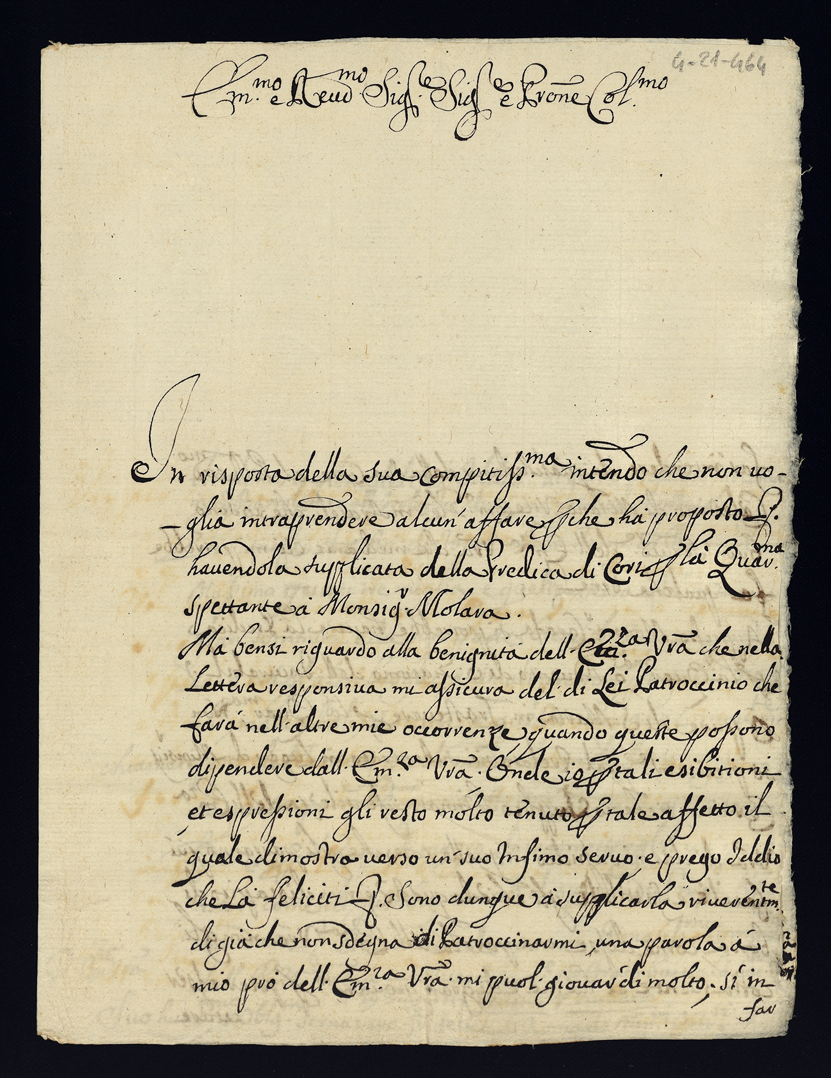 4-21-464
Em.mo e Reud.mo Sig.re Sig.re e Prone Col.mo
In risposta della sua compitiss.ma intendo che non uo-
-glia intraprendere alcun' affare che há proposto
hauendola supplicata della Predica di Cori la Quar.ma
spettante á Monsig.r Molara.
Má bensi riguardo alla benignitá dell' Em.za Vrã che nella
Lettera responsiua mi assicura del di Lei Patroccinio che
fará nell' altre mie occorrenze, quando queste possono
dipendere dall' Em.za Vrã. Onde io tali esibitioni
et espressioni gli resto molto tenuto tale affetto il
quale dimostra uerso un' suo Infimo seruo. e prego Iddio
che La feliciti. Sono dunque á supplicarla riuerentm.te
di giá che non sdegna di Patroccinarmi, una parola á
mio pró dell' Em.za Vrã mi puol giouar' di molto; sí in
far